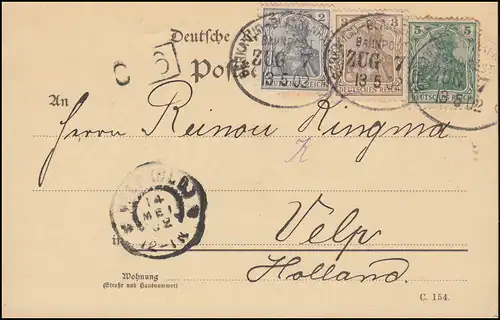 Deutsche
Post
2 3 5
DEUTSCHES REICH DEUTSCHES REICH DEUTSCHES REICH
BAHNPOST
ZUG 7 ZUG 7
13 5 02 13 5
7
5.02
C
3
An
Herrn Reinou Ringnau
K
14
MEI
02
in
Velp
Holland.
Wohnung
(Straße und Hausnummer)
C. 154.